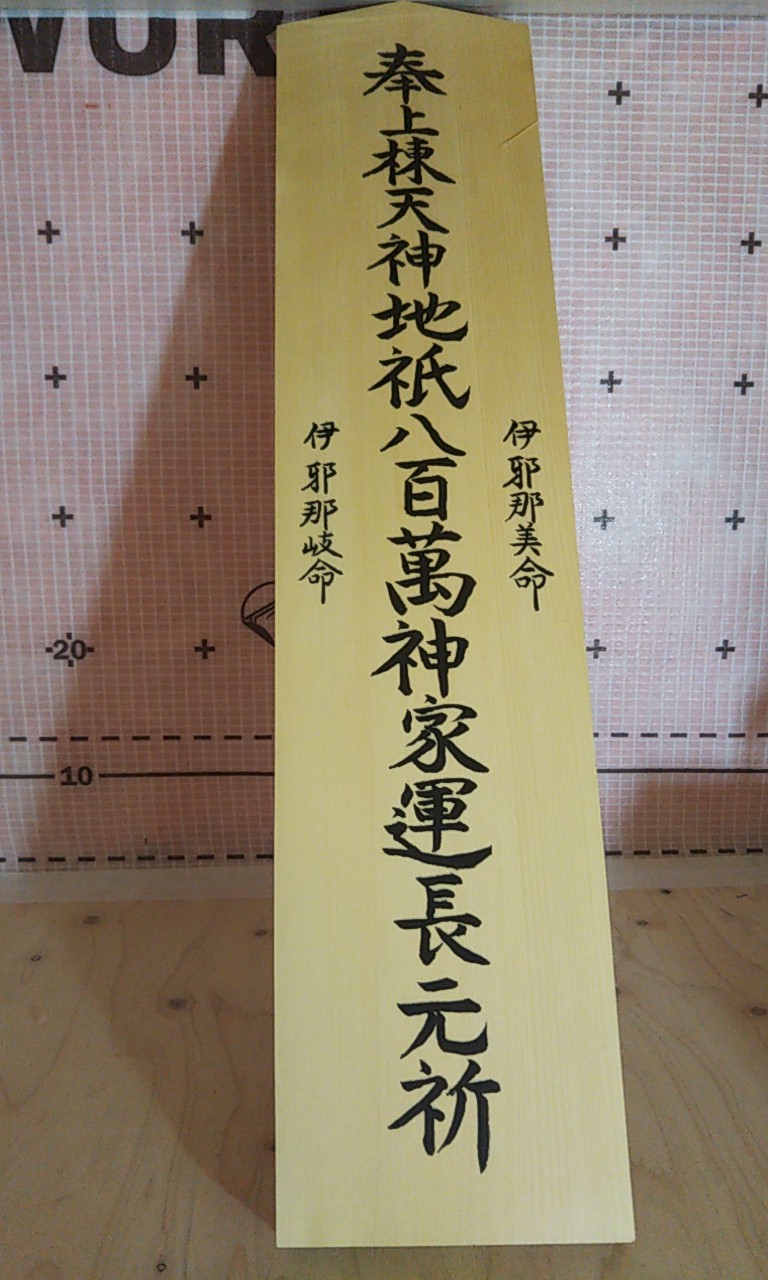 奉上棟天神地祇八百萬神家運長元祈
伊邪那美命
伊邪那岐命
20
10